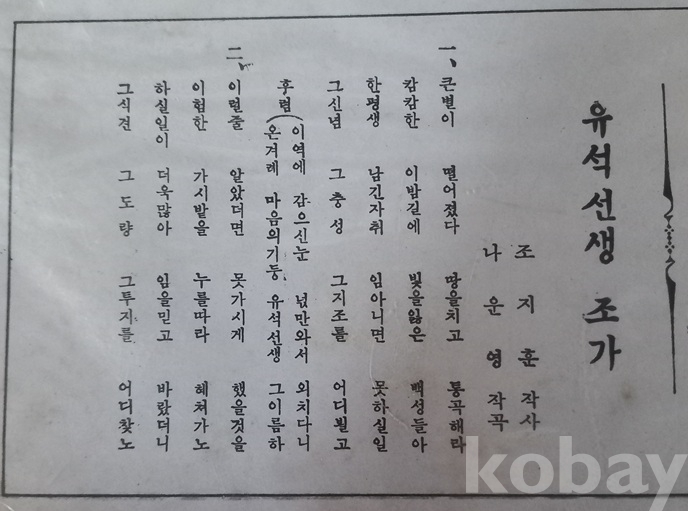 유석선생 조가
조지훈 작사
나운영 작곡
一、 큰별이 떨어졌다 땅을치고 통곡해라
캄캄한 이밤길에 빛을잃은 백성들아
한평생 남긴자취 임아니면 못하실일
그신념 그충성 그지조를 어디뵐고
후렴( 이역에 감으신눈 넋만와서 외치다니
온겨레 마음의기둥 유석선생 그이름하
二、 이럴줄 알았더면 못가시게 했을것을
이험한 가시밭을 누를따라 헤쳐가노
하실일이 더욱많아 임을믿고 바랐더니
그식견 그도량 그투지를 어디찾노
kobay